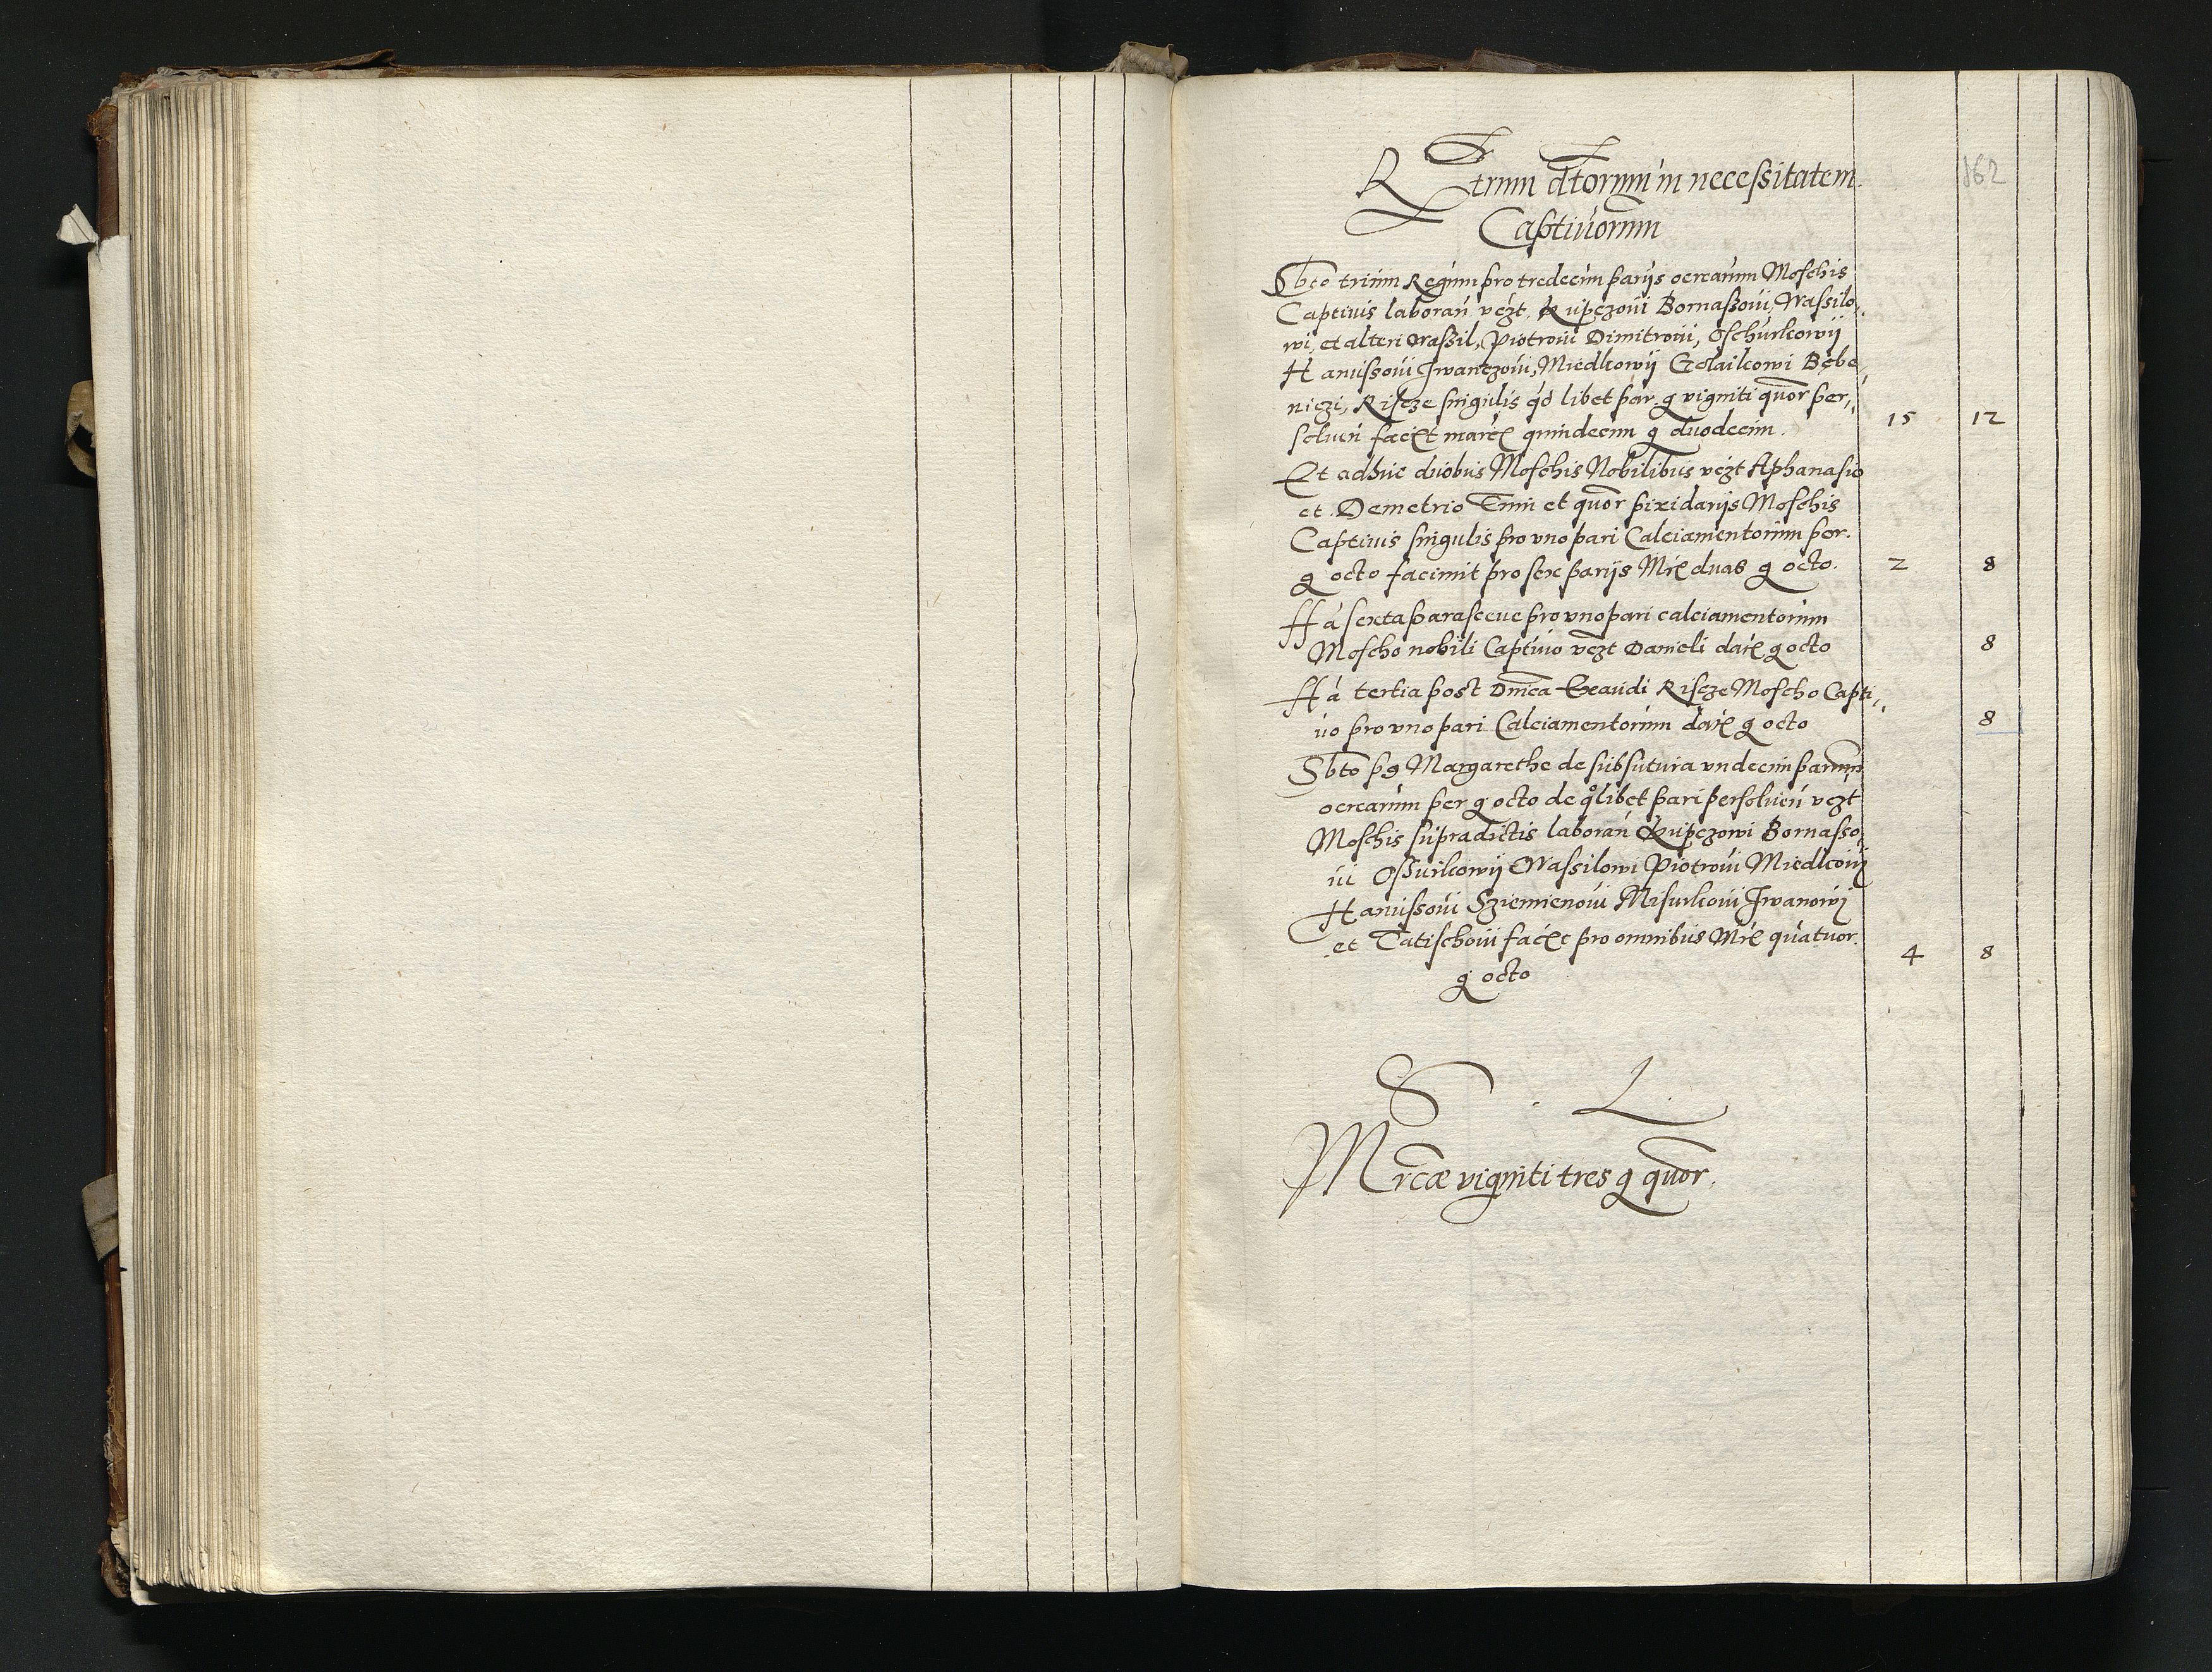 162
Rtrum dtorum in necessitatem
Captivorum
Sbto trium Regum pro tredecim parijs ocrearum Moschis
Captivis laboran vczt. Kupczovi Bornassovi, Wassilo
wi, et alteri Wassil, Piotrovi Dimitrovi, Oschurkowij
Hanussovi Iwanczovi, Miedkowij Bebe
niczi, Riscze singulis qd libet par. g viginti quor per
solven faciet marcx quindecim g duodecim. 15 12
Et adhuc duobus Moschis Nobilibus vczt Aphanasio
et Demetrio et quor pixidarijs Moschis
Captivis singulis pro vno pari Calciamentorum per.
g octo faciunt pro sex parijs Mrx duas g octo. 2 8
Ha sexta parasceve pro vno pari calciamentorum
Moscho nobili Captivo vczt Danieli datx g octo 8
Ha tertia post Dnica Exaudi Riscze Moscho Capti
vo pro vno pari Calciamentorum datx g octo 8
Sbto p9 Margarethe de subsutura vndecim parium
ocrearum per g octo de qlibet pari persolven vczt
Moschis supradictis laboran Kupczowi Bornasso
vi Ossurkowij Wassilowi Piotrovi Miedkovij
Hanussovi Sziemienovi Misurkovi Iwanowi
et Tatischovi facxt pro omnibus Mrx quatvor. 4 8
g octo
S . L .
Mrcæ viginti tres g quor.